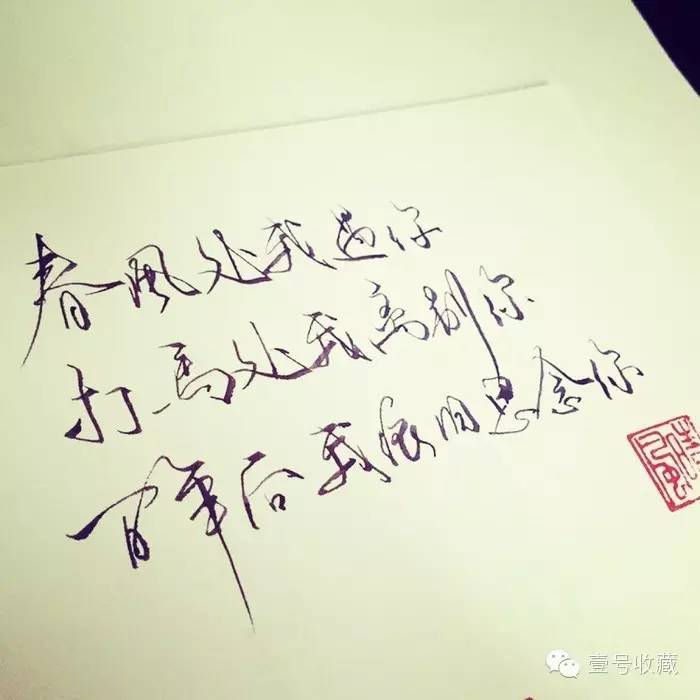 春风处我遇你
打马处我离别你
百年后我依旧思念你
壹号收藏